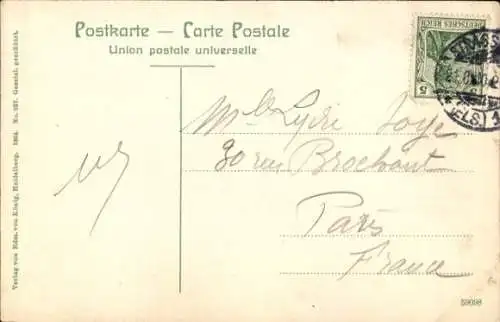 Postkarte — Carte Postale
Union postale universelle
DEUTSCHES REICH
5
(ELS) 1
Mlle Lydie Joye
30 rue Brochant
Paris
France
Verlag von Edm. von König, Heidelberg. 1904. No. 257. Gesetzl. geschützt.
59098